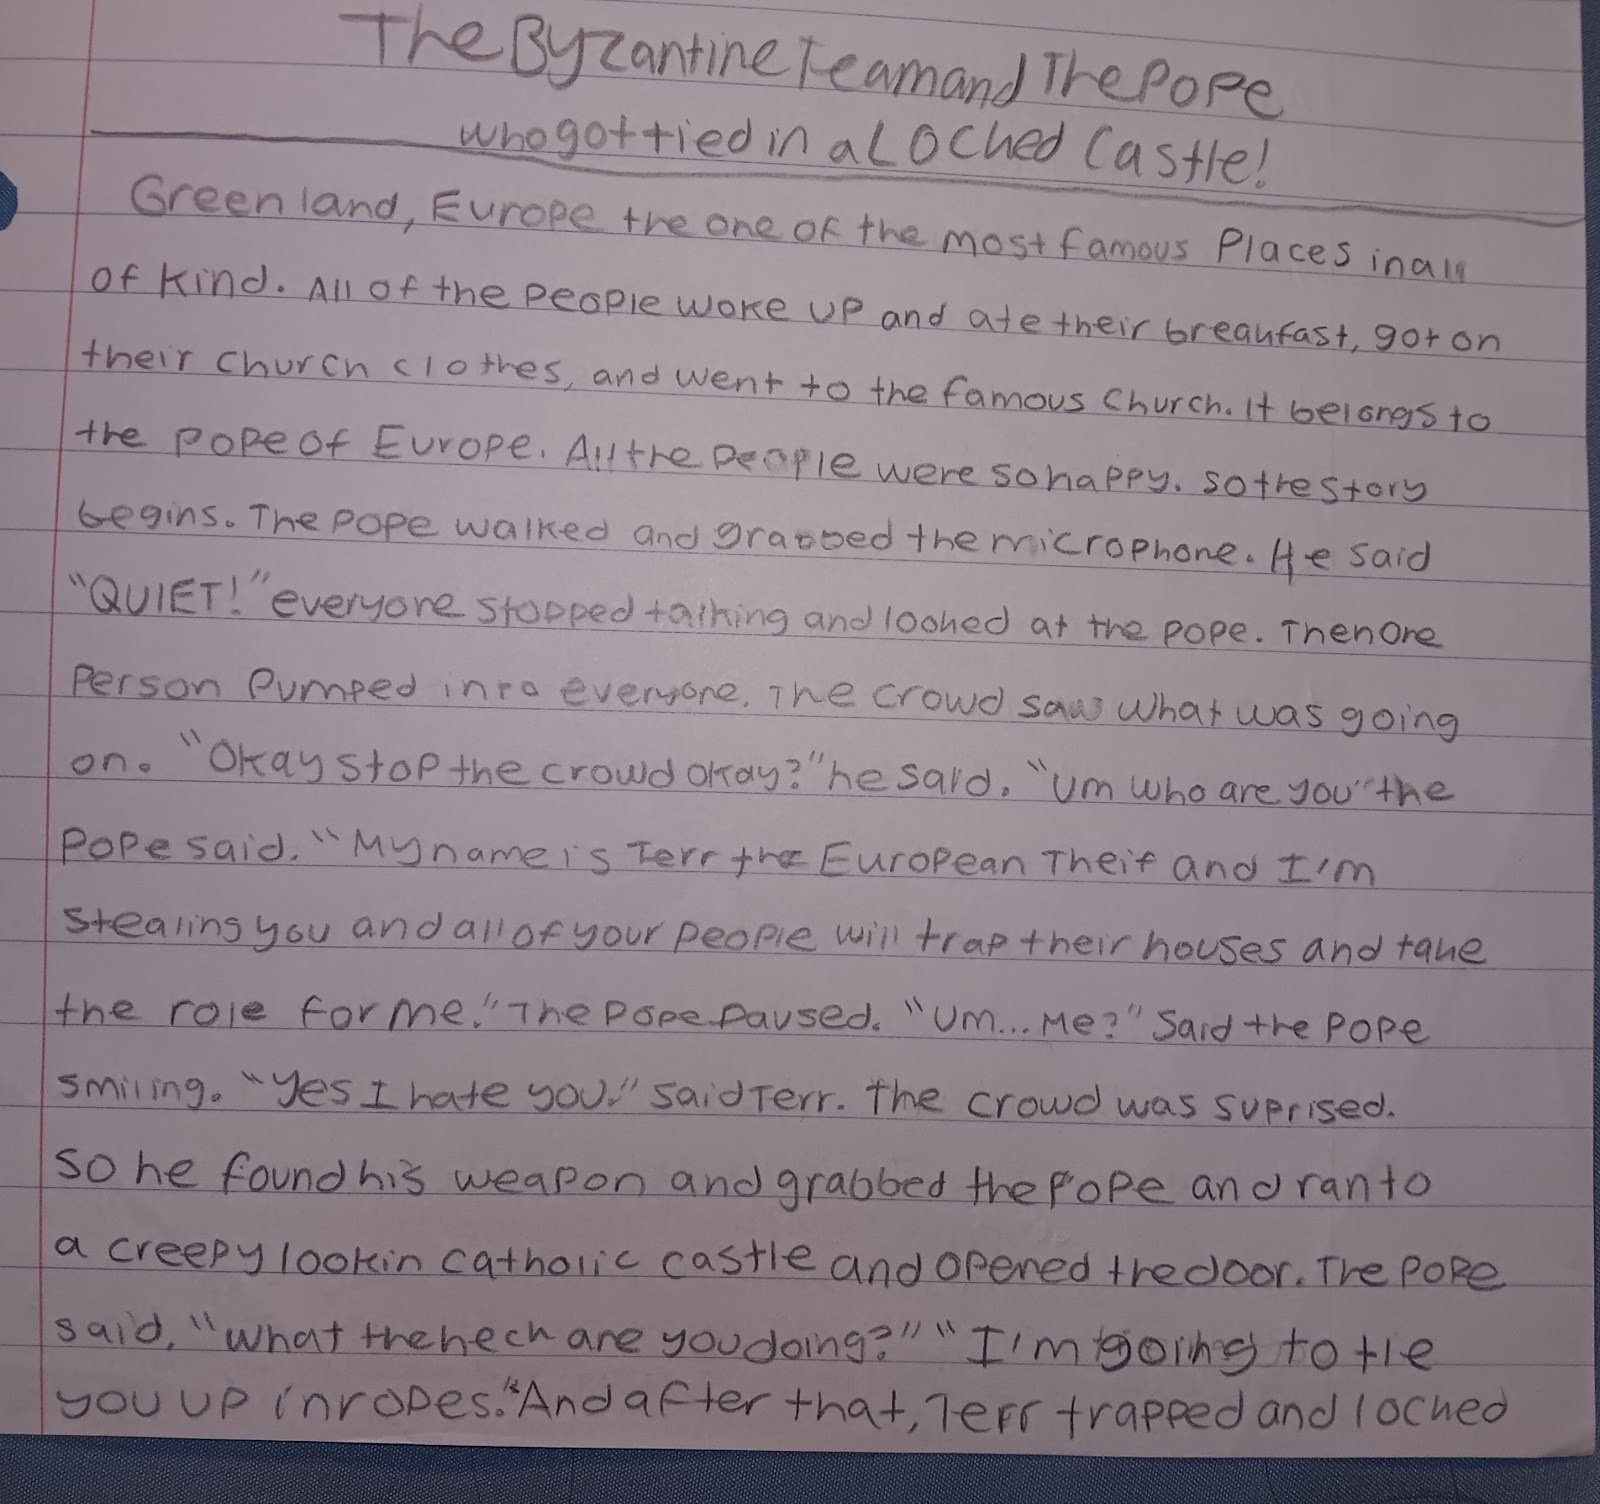 The Byzantine Team and The Pope
who got tied in a Locked Castle!
Greenland, Europe the one of the most famous Places in all
of kind. All of the people woke up and ate their breakfast, got on
their church clothes, and went to the famous church. It belongs to
the pope of Europe. All the people were so happy. So the story
begins. The pope walked and grabbed the microphone. He said
"QUIET!" everyone stopped talking and looked at the pope. Then one
Person Pumped into everyone. The crowd saw what was going
on. "Okay stop the crowd okay?" he said. "Um who are you" the
Pope said. "My name is Terr the European Theif and I'm
stealing you and all of your people will trap their houses and take
the role for me." The Pope paused. "Um... Me?" Said the Pope
smiling. "Yes I hate you." said Terr. The crowd was suprised.
So he found his weapon and grabbed the Pope and ran to
a creepy lookin catholic castle and opened the door. The Pope
said, "What the heck are you doing?" "I'm going to tie
you up in ropes." And after that, Terr trapped and locked